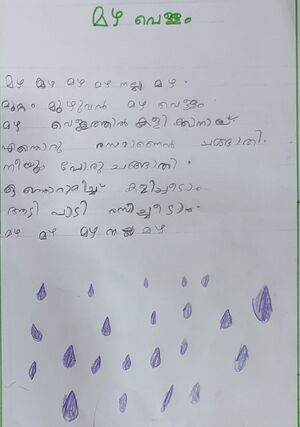 മഴ വെള്ളം
മഴ മഴ മഴ മഴ നല്ല മഴ.
മുറ്റം മുഴുവൻ മഴ വെള്ളം
മഴ വെള്ളത്തിൽ കളിക്കാനായ്
എന്തൊരു രസമാണെൻ ചങ്ങാതി.
നീയും പോരു ചങ്ങാതി.
ഒന്നൊരുമിച്ച് കളിച്ചീടാം
ആടി പാടി രസിച്ചീടാം.
മഴ മഴ മഴ നല്ല മഴ